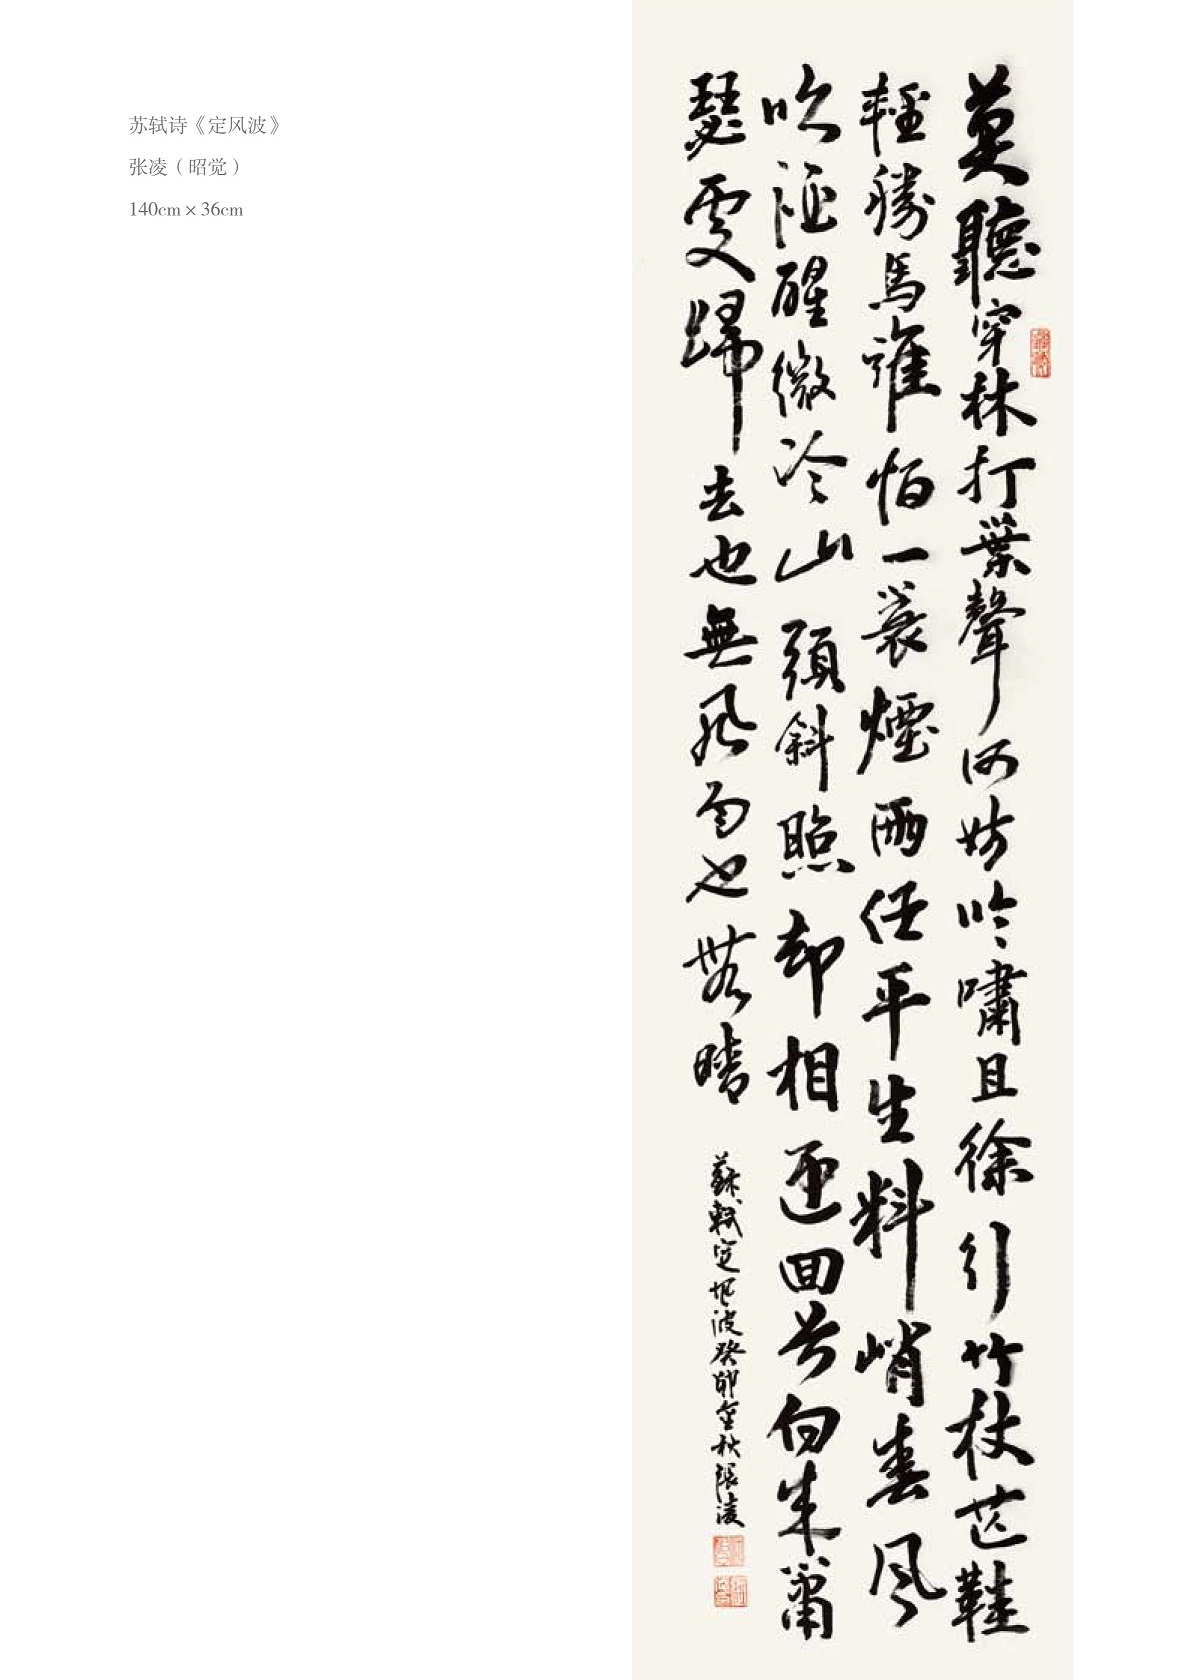 苏轼诗《定风波》
张凌（昭觉）
140cm×36cm
莫聽穿林打葉聲何妨吟嘯且徐行竹杖芒鞋
輕勝馬誰怕一蓑煙雨任平生料峭春風
吹酒醒微冷山頭斜照却相迎回首向來蕭
瑟處歸去也無風雨也無晴
蘇軾定風波癸卯金秋張凌